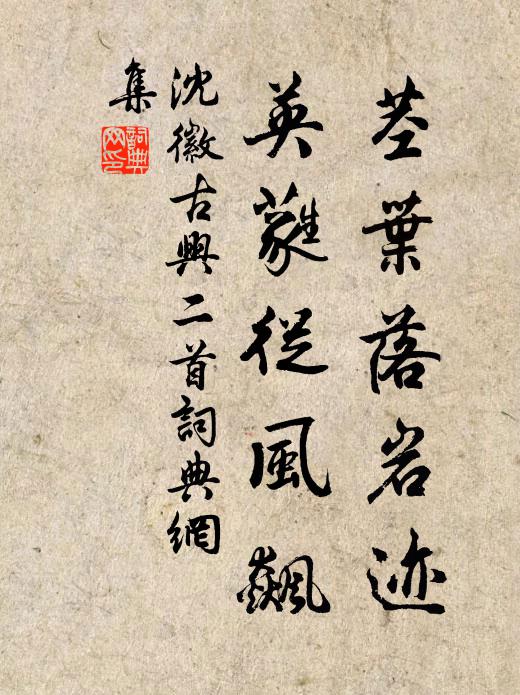 茎葉落岩迹
英蕤從風飆
沈徽古興二首詞典網
集
詞典网印